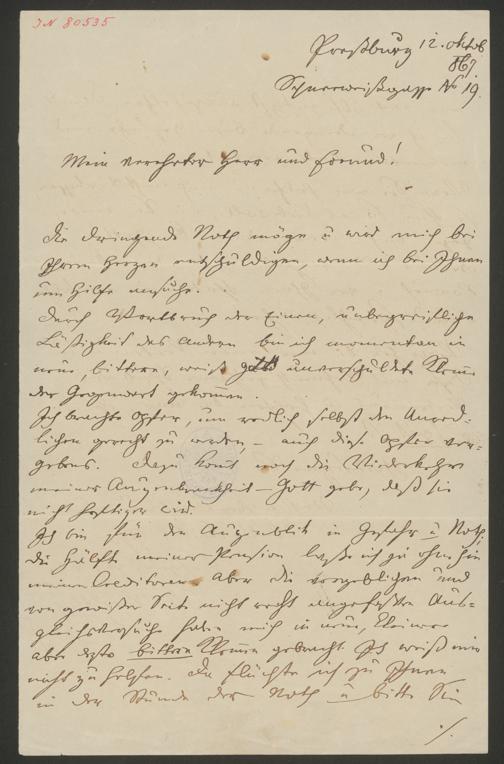 IN 80535
Preßburg 12. Oktob
867
Schneeweißgasse No 19.
Mein verehrter Herr und Freund!
Die dringende Noth möge u wird mich bei
Ihrem Herzen entschuldigen, wenn ich bei Ihnen
um Hilfe ansuche.
Durch Wortbruch der Einen, unbegreifliche
Läßigkeit des Andern bin ich momentan in
neue, bittere, weiß Gott unverschuldete
der Gegenwart gekommen.
Ich brachte Opfer, um redlich selbst den Unred-
lichen gerecht zu werden, – auch diese Opfer ver-
gebens. Dazu kömt noch die Wiederkehr
meiner Augenkrankheit – Gott gebe, daß sie
nicht heftiger wird.
Ich bin für den Augenblick in Gefahr u Noth,
die Hälfte meiner Pension laße ich ja ohnehin
meinen Creditoren. Aber die vergeblichen und
von gewißer Seite nicht recht angefaßten Aus-
gleichsversuche haben mich in neue, kleinere
aber desto bittere gebracht. Ich weiß mir
nicht zu helfen. Da flüchte ich zu Ihnen
in der Stunde der Noth u bitte Sie
./.